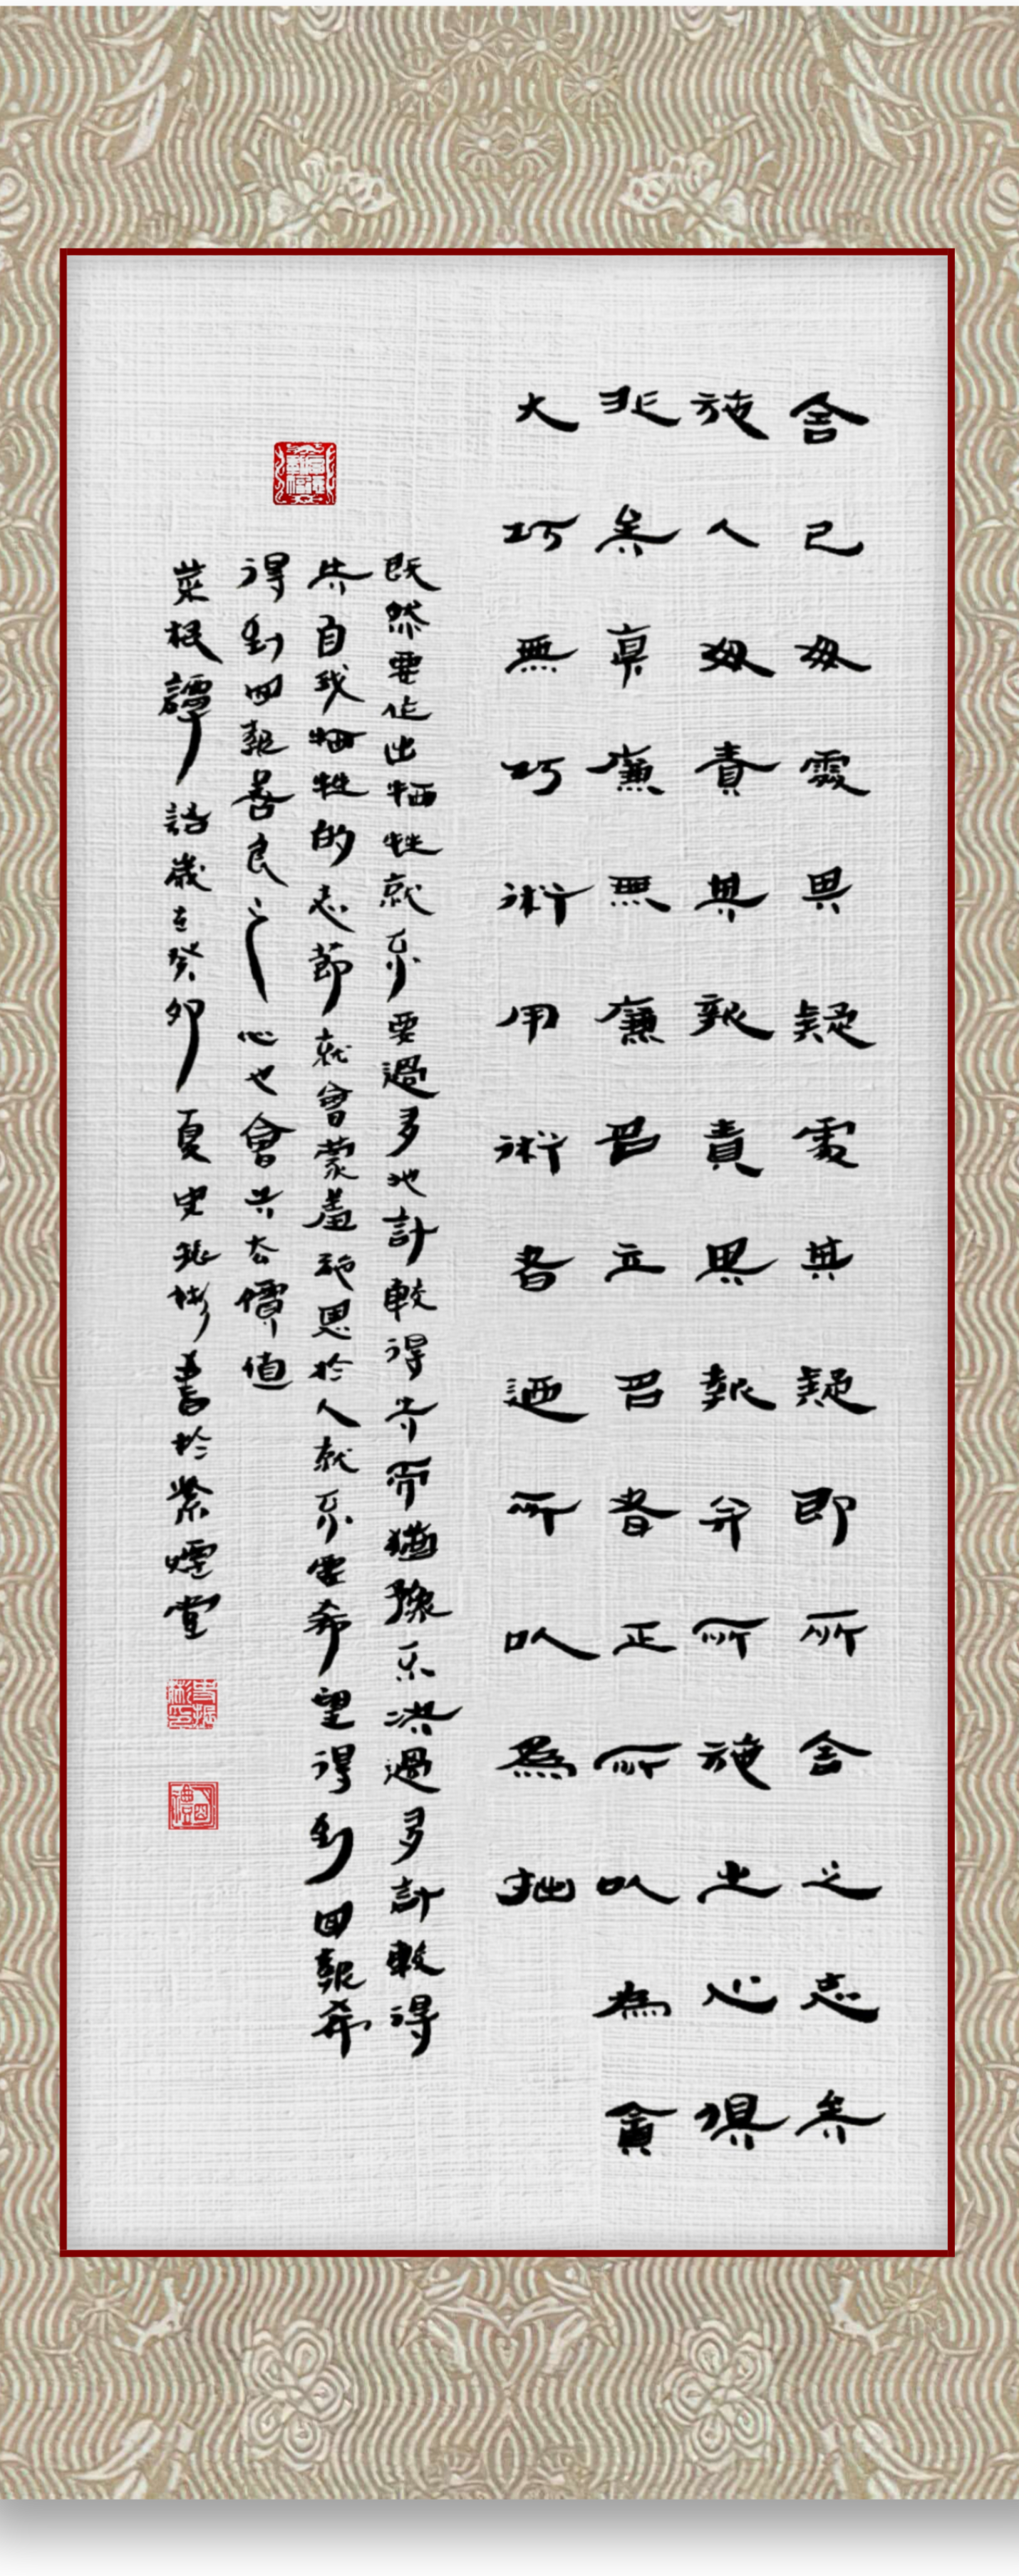 舍己毋處其疑處其疑即所舍之志矣
施人毋責其報責其報并所施之心俱
非矣真廉無廉名立名者正所以為貪
大巧無巧術用術者迺所以為拙
既然要作出牺牲就不要過多地計較得失而猶豫不決過多計較得
失自我牺牲的志節就會蒙羞施恩於人就不要希望得到回報希
得到回報善良之心也會失去價值
菜根譚語歲在癸卯夏史振彬書於紫煙堂
史振彬印